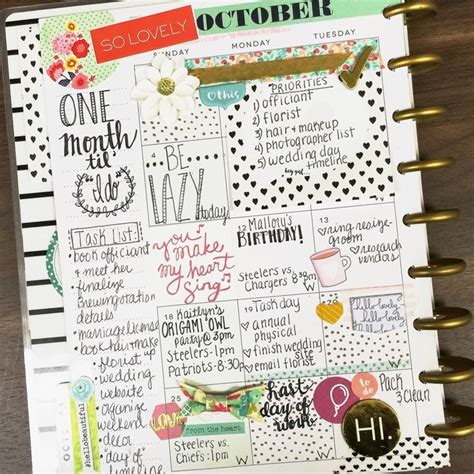 SO LOVELY
OCTOBER
SUNDAY
MONDAY
TUESDAY
ONE
month
til
"I do"
this
PRIORITIES
1) officiant
2) florist
3) hair + makeup
4) photographer list
5) wedding day
timeline
BE
LAZY
today!
TASK LIST:
• book officiant
& meet her
• finalize
details
• marriage license
• book hair + make
up
• florist
• wedding
website
• organize
weekend
decor
• day of
timeline
you
make
my heart
sing
12
Mallory's
BIRTHDAY!
Steelers vs.
Chargers
13
ring resize-
groom
research
vendors
18
Kaitlyn's
ORIGAMI OWL
PARTY
Steelers-1pm
Patriots-8:30
19
Task day
• annual
physical
• finish wedding
site
• email florist
20
hello lovely
hello lovely
hello lovely
25
LOVE
from the heart
Steelers vs.
Chiefs
last
day of
work
to
do
Pack
3 clean
HI.
#hellobeautiful